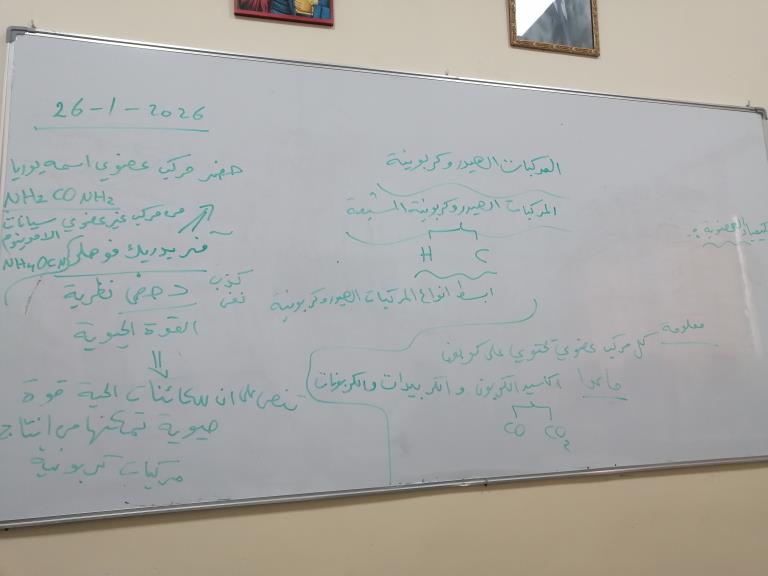 الكيمياء العضوية :
المركبات الهيدروكربونية
المركبات الهيدروكربونية المشبعة
C H
ابسط انواع المركبات الهيدروكربونية
معلومة
كل مركب عضوي يحتوي على كربون
ماعدا اكاسيد الكربون والكربيدات والكربونات
CO CO2
26-1-2026
حضر مركب عضوي اسمه يوريا
NH2 CO NH2
من مركب غير عضوي سيانات
الامونيوم
NH4OCN
فريدريك فوهلر
كذب
نفى
دحض نظرية
القوة الحيوية
تنص على ان للكائنات الحية قوة
حيوية تمكنها من انتاج
مركبات كربونية